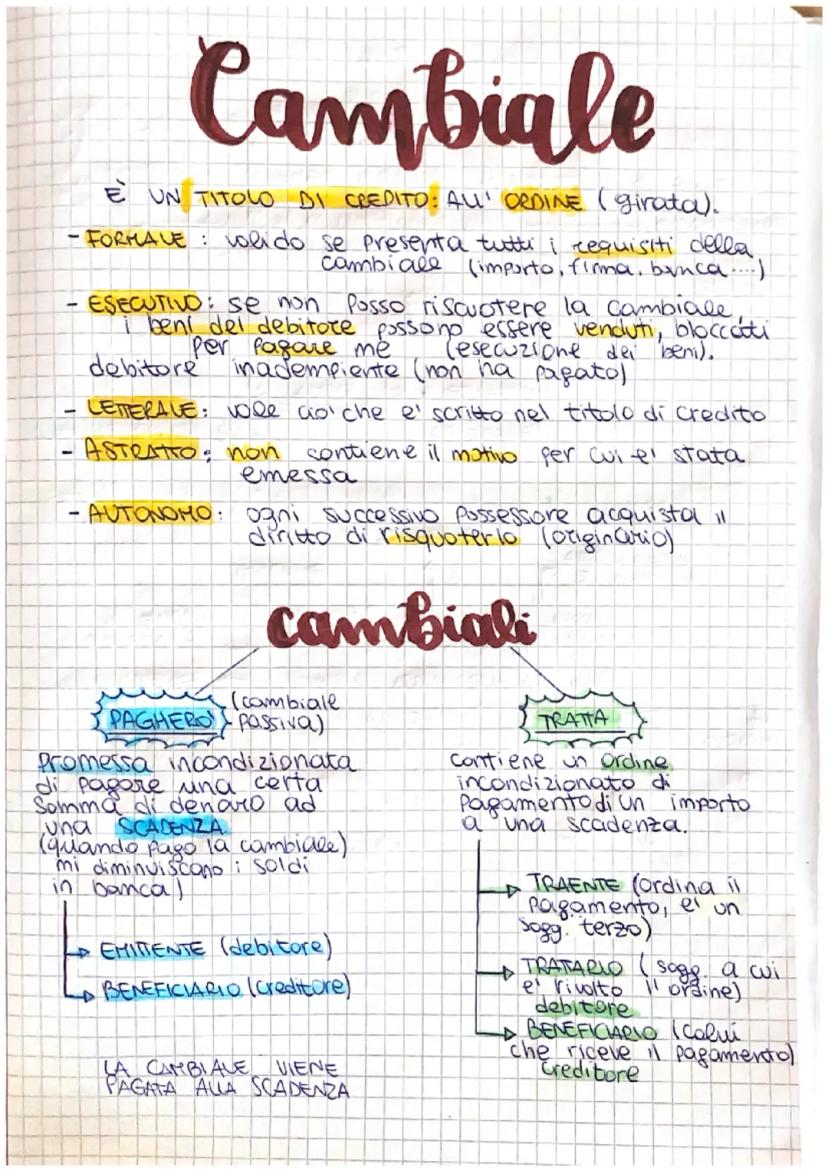 Cambiale
È UN TITOLO DI CREDITO: ALL' ORDINE (girata).
- FORMALE : valido se presenta tutti i requisiti della
cambiale (importo, firma, banca ....)
- ESECUTIVO: se non posso riscuotere la cambiale,
i beni del debitore possono essere venduti, bloccati
per pagare me (esecuzione dei beni).
debitore inadempiente (non ha pagato)
- LETTERALE: vale cio' che e' scritto nel titolo di credito
- ASTRATTO: non contiene il motivo per cui e' stata
emessa
- AUTONOMO: ogni successivo possessore acquista il
diritto di risquoterlo (originario)
cambiali
PAGHERO' (cambiale
passiva)
Promessa incondizionata
di pagare una certa
somma di denaro ad
una SCADENZA
(quando pago la cambiale)
mi diminuiscono i soldi
in banca)
EMITTENTE (debitore)
BENEFICIARIO (creditore)
LA CAMBIALE VIENE
PAGATA ALLA SCADENZA
TRATTA
contiene un ordine
incondizionato di
pagamento di un importo
a una scadenza.
TRAENTE (ordina il
pagamento, e' un
sogg. terzo)
TRATARIO ( sogg. a cui
e' rivolto l'ordine)
debitore
BENEFICIARIO (colui
che riceve il pagamento)
creditore